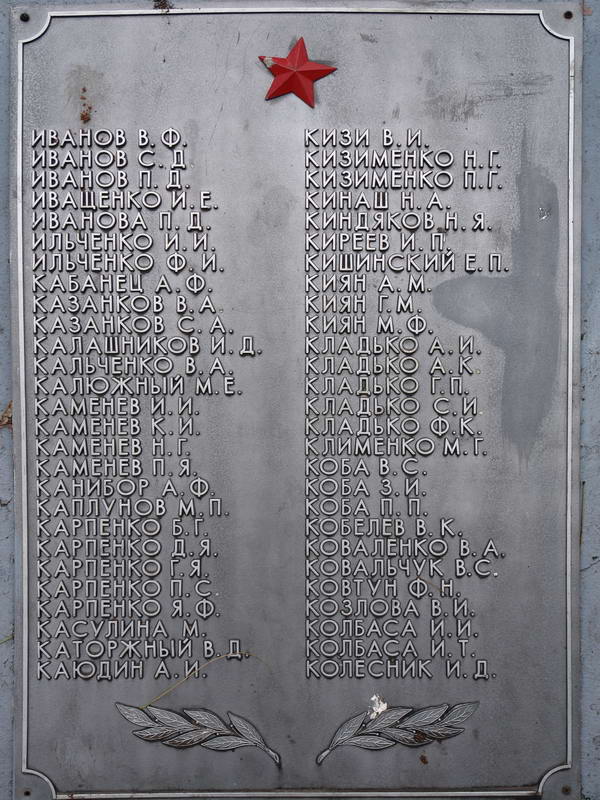 ИВАНОВ В.Ф.
ИВАНОВ С.Д
ИВАНОВ П.Д.
ИВАЩЕНКО И.Е.
ИВАНОВА П.Д.
ИЛЬЧЕНКО И.И.
ИЛЬЧЕНКО Ф.И.
КАБАНЕЦ А.Ф.
КАЗАНКОВ В.А.
КАЗАНКОВ С.А.
КАЛАШНИКОВ И.Д.
КАЛЬЧЕНКО В.А.
КАЛЮЖНЫЙ М.Е.
КАМЕНЕВ И.И.
КАМЕНЕВ К.И.
КАМЕНЕВ Н.Г.
КАМЕНЕВ П.Я.
КАНИБОР А.Ф.
КАПЛУНОВ М.П.
КАРПЕНКО Б.Г.
КАРПЕНКО Д.Я.
КАРПЕНКО Г.Я.
КАРПЕНКО П.С.
КАРПЕНКО Я.Ф.
КАСУЛИНА М.
КАТОРЖНЫЙ В.Д.
КАЮДИН А.И.
КИЗИ В.И.
КИЗИМЕНКО Н.Г.
КИЗИМЕНКО П.Г.
КИНАШ Н.А.
КИНДЯКОВ Н.Я.
КИРЕЕВ И.П.
КИШИНСКИЙ Е.П.
КИЯН А.М.
КИЯН Г.М.
КИЯН М.Ф.
КЛАДЬКО А.И.
КЛАДЬКО А.К.
КЛАДЬКО Г.П.
КЛАДЬКО С.И.
КЛАДЬКО Ф.К.
КЛИМЕНКО М.Г.
КОБА В.С.
КОБА З.И.
КОБА П.П.
КОБЕЛЕВ В.К.
КОВАЛЕНКО В.А.
КОВАЛЬЧУК В.С.
КОВТУН Ф.Н.
КОЗЛОВА В.И.
КОЛБАСА И.И.
КОЛБАСА И.Т.
КОЛЕСНИК И.Д.